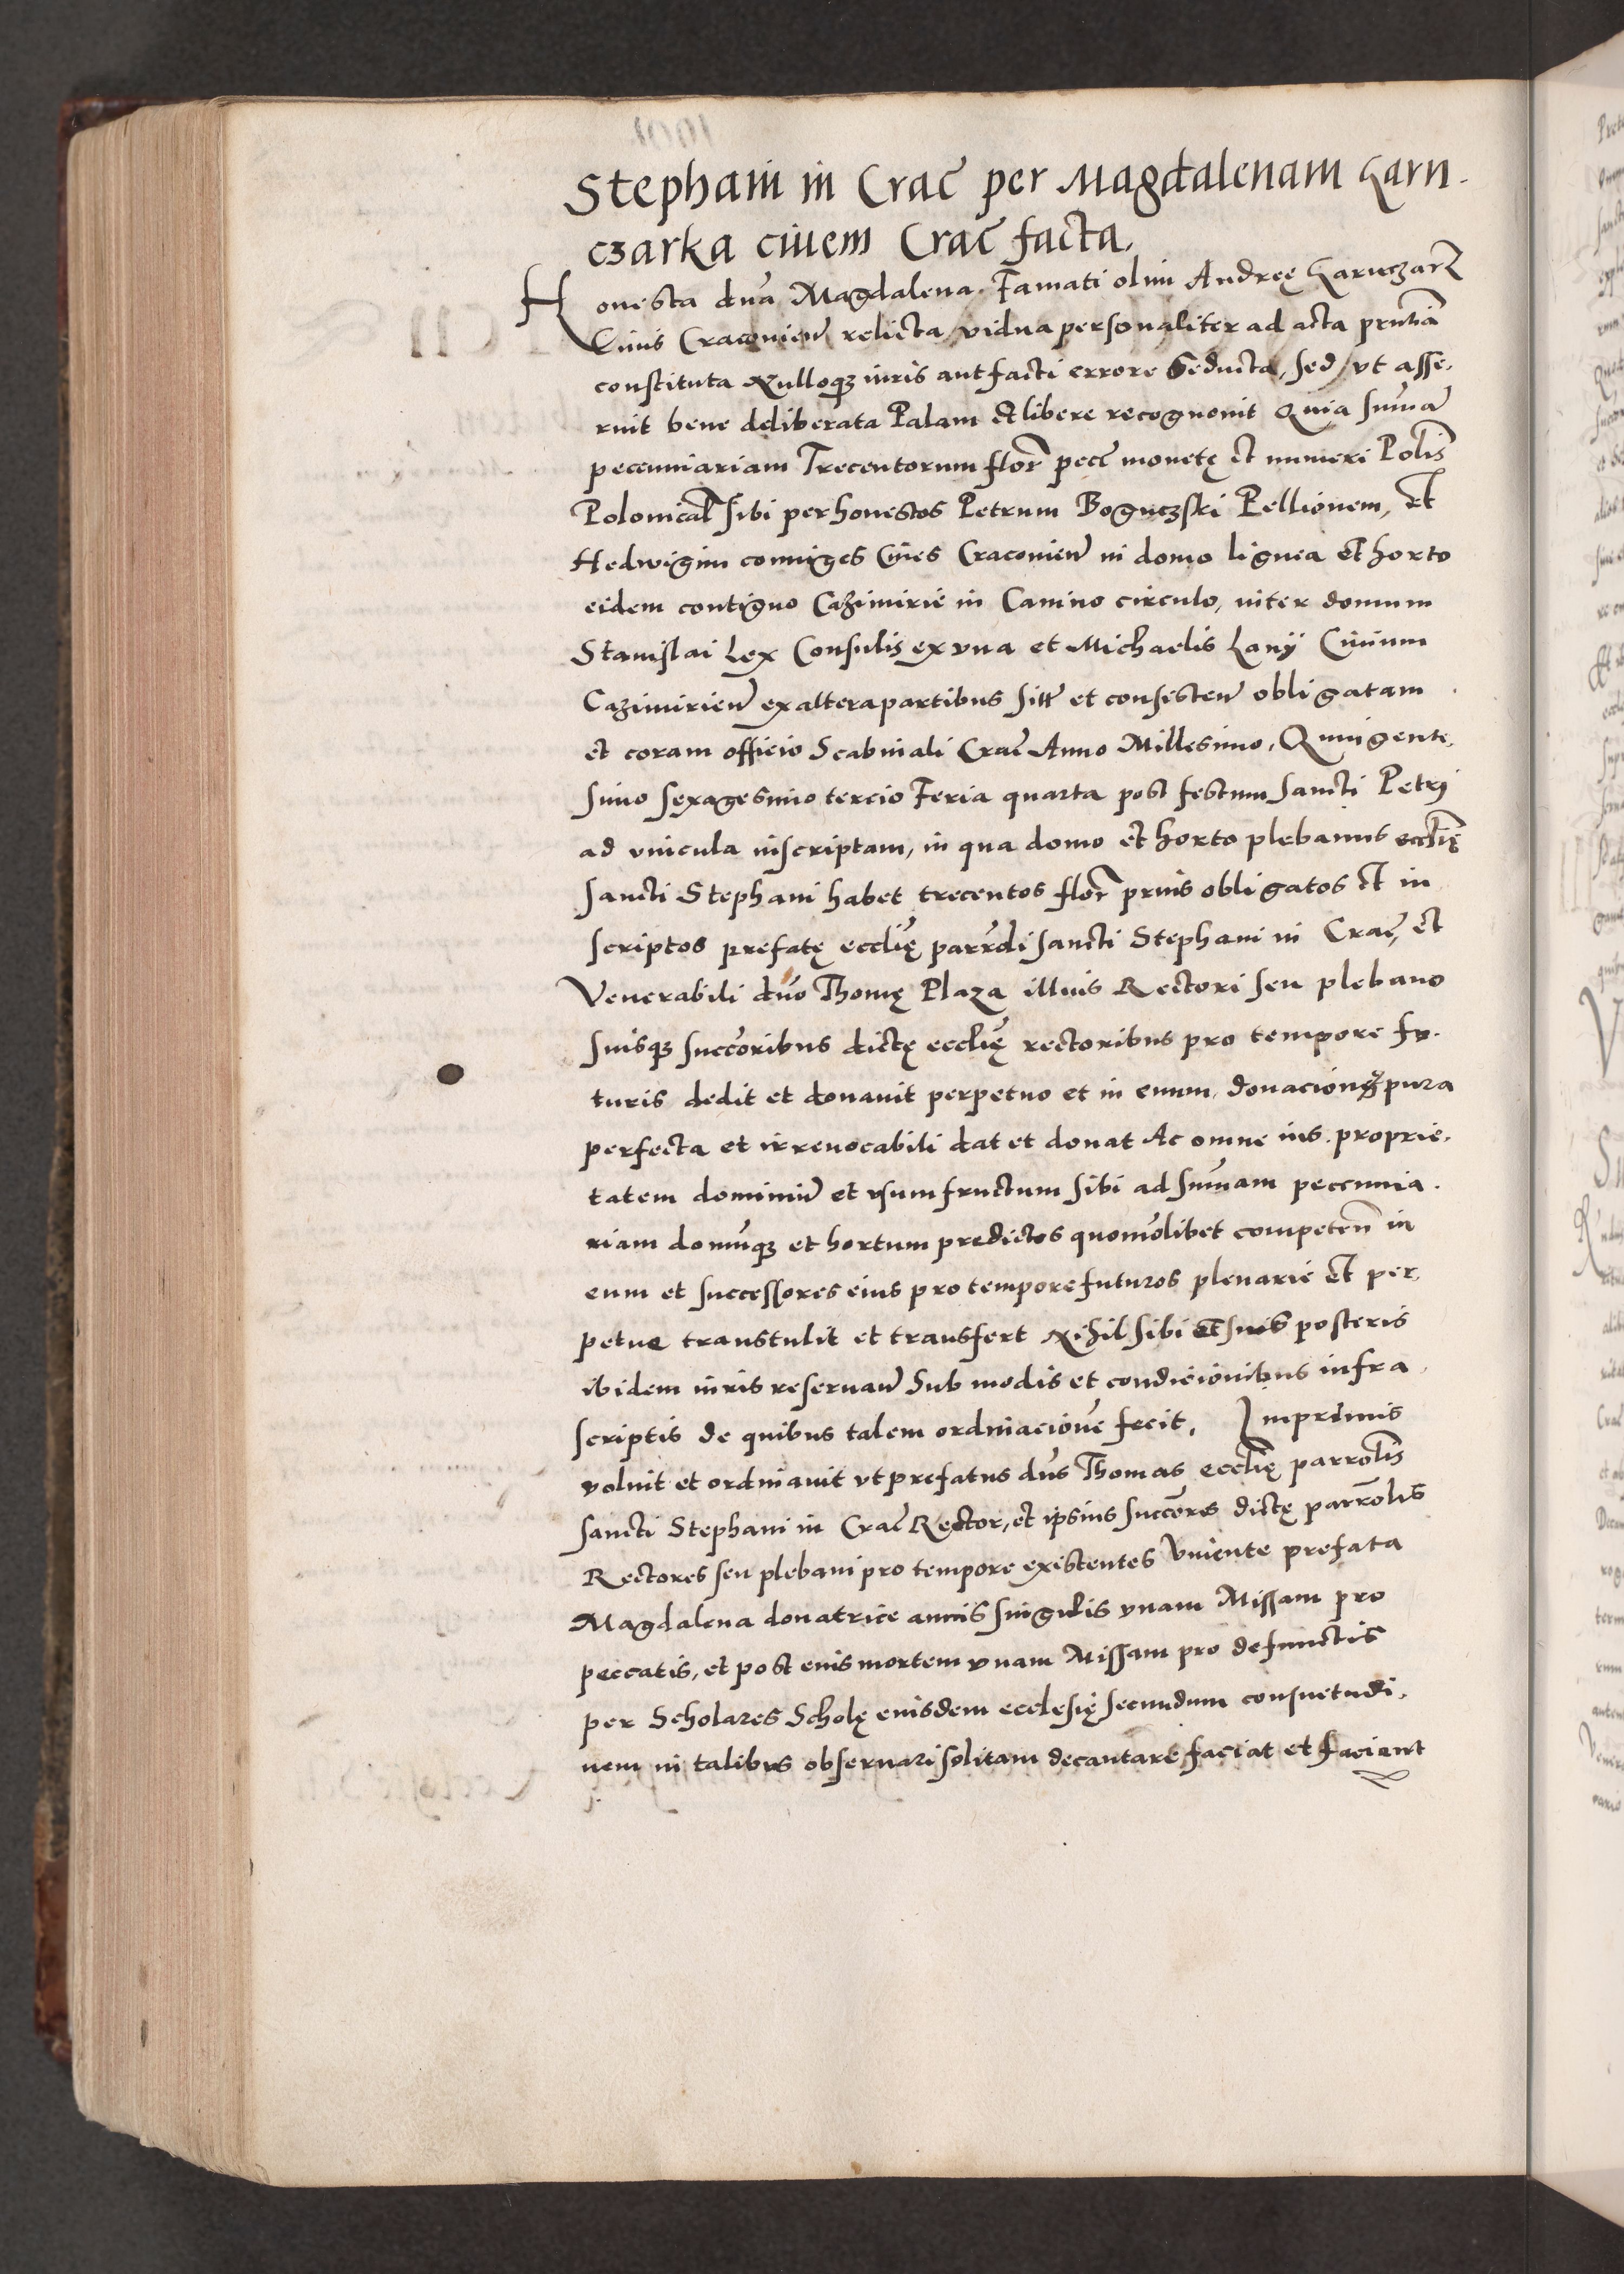 Stephani in Crac̃ per Magdalenam Garn-
czarka ciuem Crac̃ facta.
Honesta dña Magdalena. Famati olim Andreę Garnczarz
Ciuis Cracouieñ relicta vidua personaliter ad acta pñtia
constituta Nulloqȝ iuris aut facti errore seducta, sed vt asse-
ruit bene deliberata Palam et libere recognouit Quia sum̃ã
pecuniariam Trecentorum flor̃ pecc̃ monetę et numeri Pol̃is
Polonical̃ sibi per honestos Petrum Boguczski Pellionem, et
Hedwigim coniuges Ciues Cracouieñ in domo lignea et horto
eidem contiguo Cazimirie in Camino circulo, inter domum
Stanislai Lex Consulis ex vna et Michaelis Lanij Ciuium
Cazimirieñ ex altera partibus sitt̃ et consisteñ obligatam
et coram officio Scabinali Crac̃ Anno Millesimo, Quingente-
simo sexagesimo tercio Feria quarta post festum sancti Petrj
ad vincula inscriptam, in qua domo et horto plebanus eccl̃ię
sancti Stephani habet trecentos flor̃ prius obligatos et in
scriptos prefatę eccl̃ię parr̃di sancti Stephani in Crac̃, et
Venerabili dño Thomę Plaza illius Rectori seu plebano
suisqȝ succ̃oribus dictę eccl̃ię rectoribus pro tempore fu-
turis dedit et donauit perpetuo et in euum, donacionę pura
perfecta et irreuocabili dat et donat Ac omne ius proprie-
tatem dominiũ et vsumfructum sibi ad sum̃am peccunia-
riam domũqȝ et hortum predictos quomõlibet competeñ in
eum et successores eius pro tempore futuros plenarie et per-
petue transtulit et transfert Nihil sibi et suis posteris
ibidem iuris reseruañ Sub modis et condicionibus infra
scriptis de quibus talem ordinacionẽ fecit, Imprimis
voluit et ordinauit vt prefatus dñs Thomas eccl̃ię parrol̃is
sancti Stephani in Crac̃ Rector, et ipsius succ̃ores dictę parrol̃is
Rectores seu plebani pro tempore existentes viuente prefata
Magdalena donatrice annis singulis vnam Missam pro
peccatis, et post eius mortem vnam Missam pro defunctis
per Scholares Scholę eiusdem ecclesię secundum consuetudi-
nem in talibus obseruari solitam decantare faciat et faciant